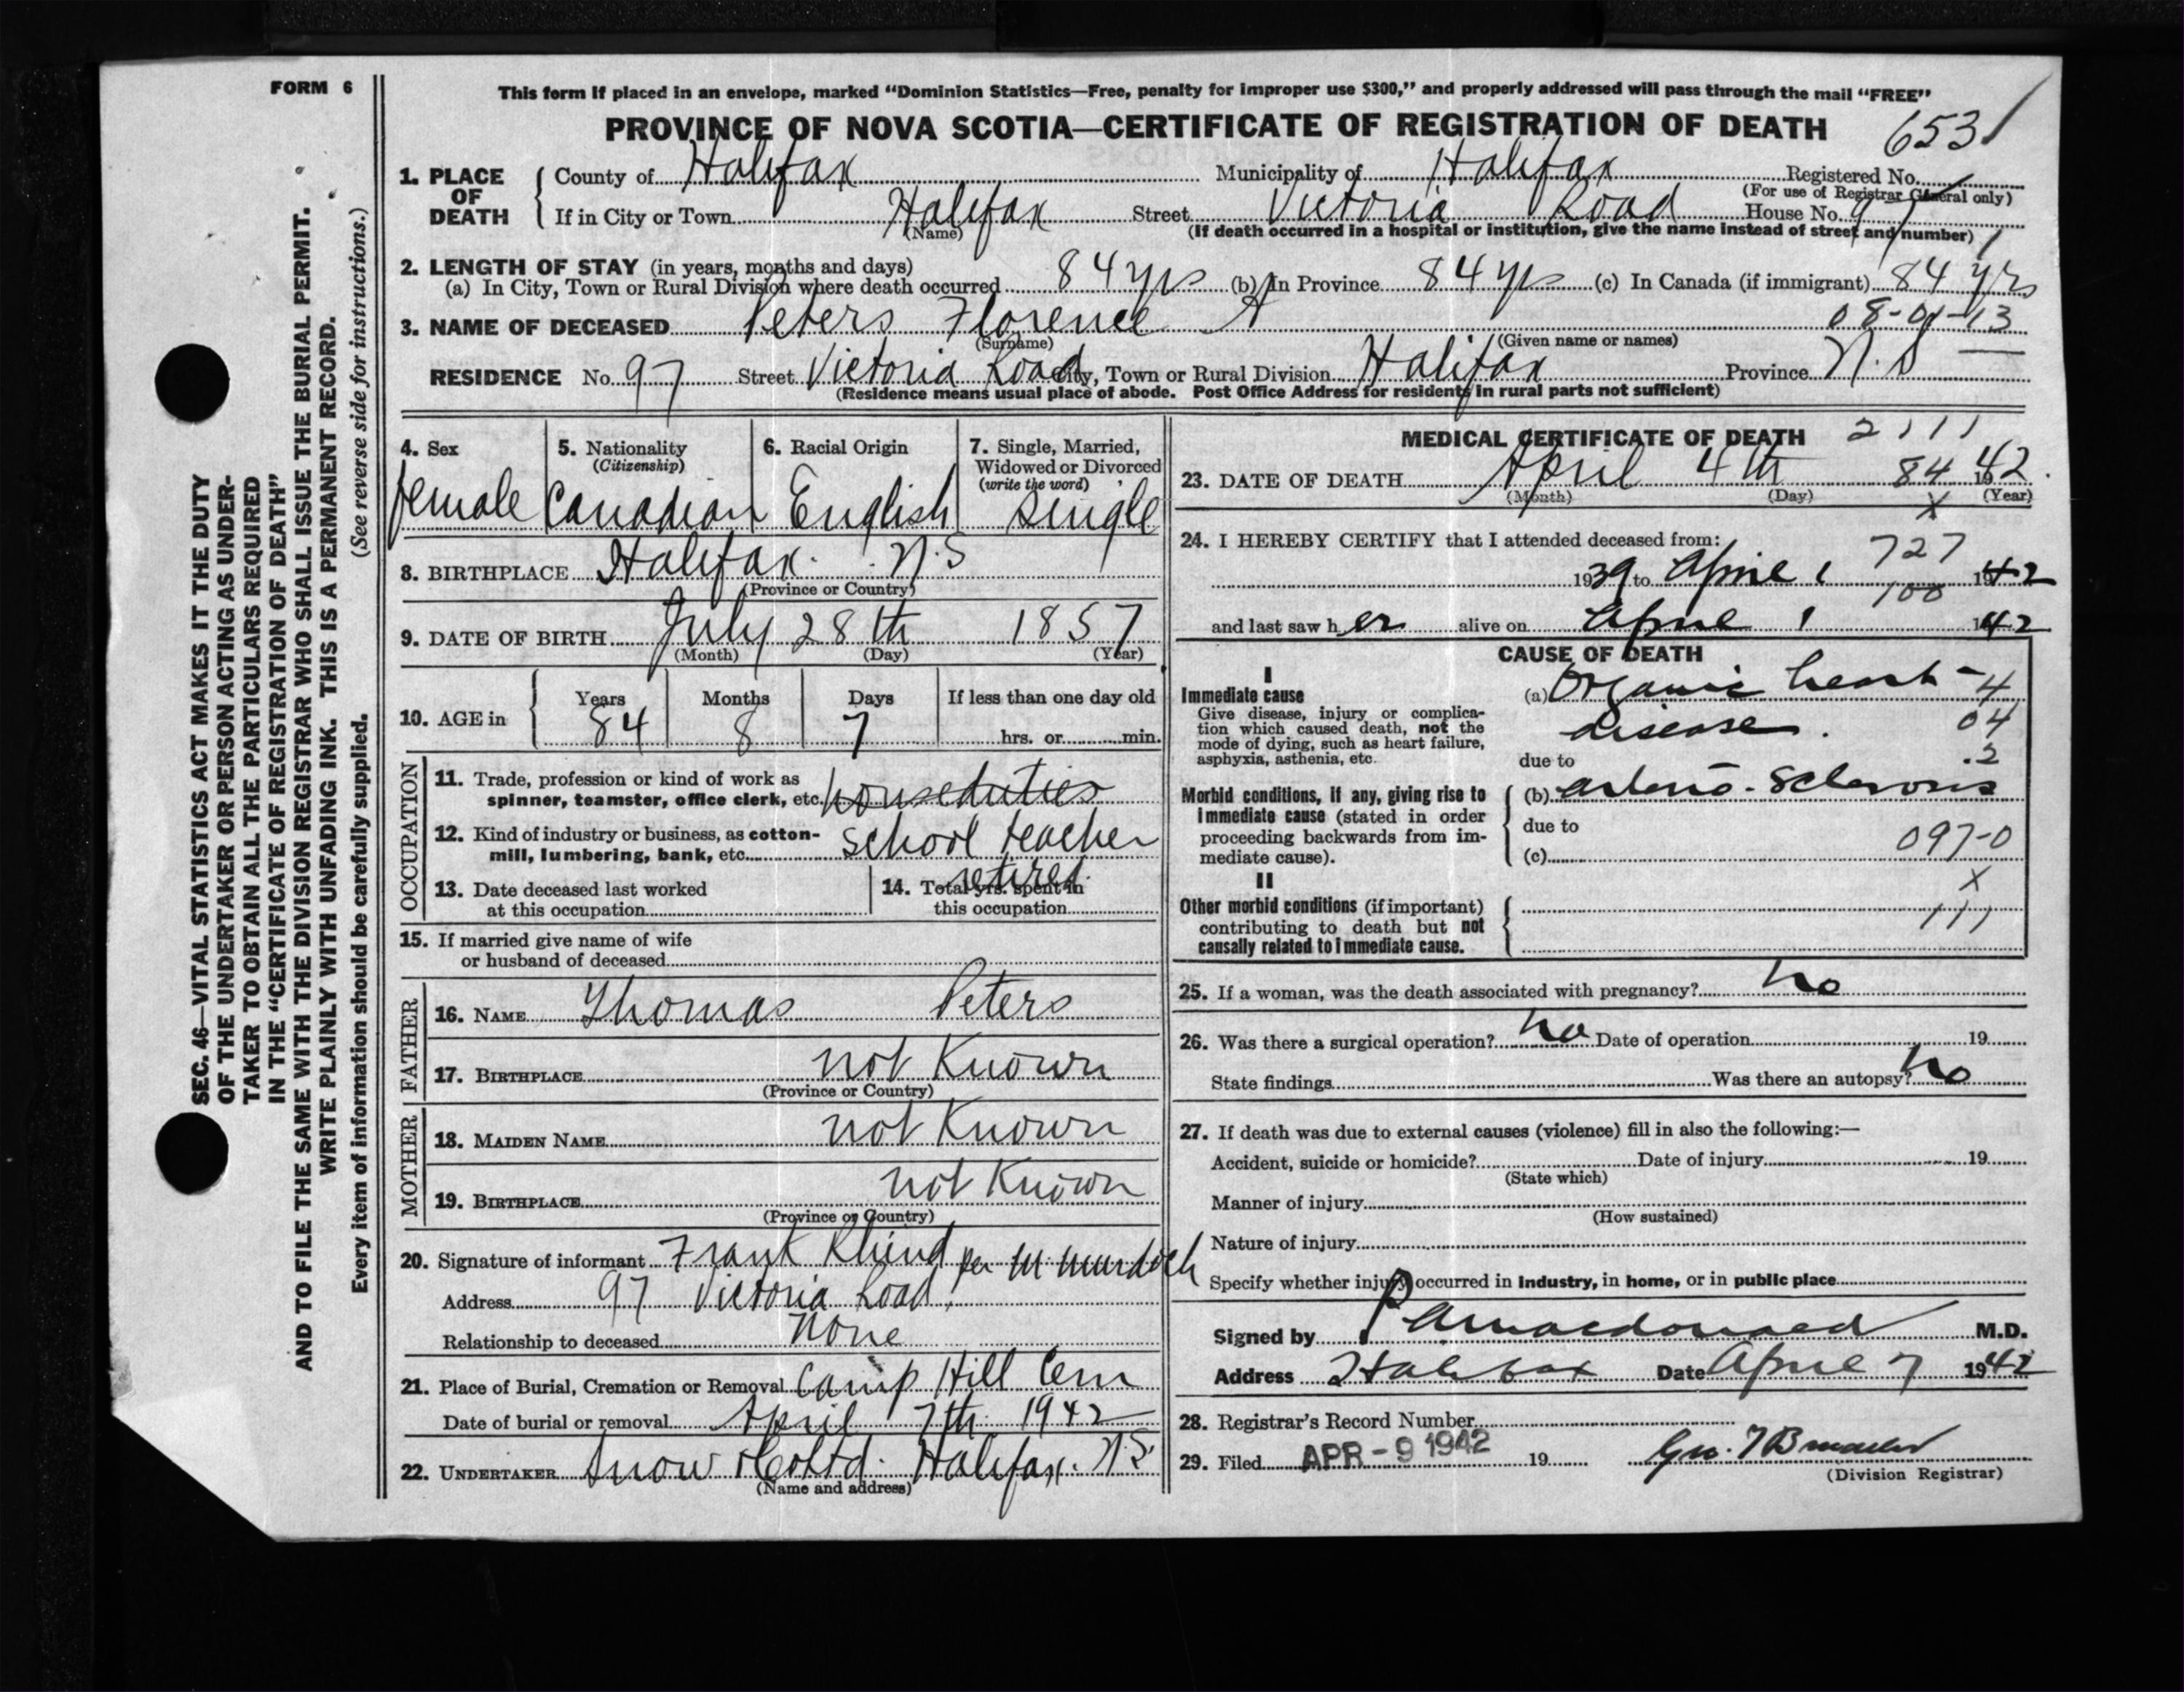 FORM 6
This form if placed in an envelope, marked "Dominion Statistics—Free, penalty for improper use $300," and properly addressed will pass through the mail "FREE"
PROVINCE OF NOVA SCOTIA—CERTIFICATE OF REGISTRATION OF DEATH 653
1. PLACE OF DEATH { County of Halifax Municipality of Halifax Registered No.
(For use of Registrar General only)
If in City or Town Halifax Street Victoria Road House No. 97
(Name) (If death occurred in a hospital or institution, give the name instead of street and number)
2. LENGTH OF STAY (in years, months and days)
(a) In City, Town or Rural Division where death occurred 84 yrs (b) In Province 84 yrs (c) In Canada (if immigrant) 84 yrs
08-01-13
3. NAME OF DECEASED Peters Florence A
(Surname) (Given name or names)
RESIDENCE No. 97 Street Victoria Road City, Town or Rural Division Halifax Province N.S
(Residence means usual place of abode. Post Office Address for residents in rural parts not sufficient)
4. Sex
female
5. Nationality
(Citizenship)
Canadian
6. Racial Origin
English
7. Single, Married,
Widowed or Divorced
(write the word)
single
8. BIRTHPLACE Halifax. N.S
(Province or Country)
9. DATE OF BIRTH July 28th 1857
(Month) (Day) (Year)
10. AGE in { Years Months Days If less than one day old
84 8 7 hrs. or min.
OCCUPATION
11. Trade, profession or kind of work as
spinner, teamster, office clerk, etc. houseduties
12. Kind of industry or business, as cotton-
mill, lumbering, bank, etc. school teacher
retired
13. Date deceased last worked
at this occupation
14. Total yrs. spent in
this occupation
15. If married give name of wife
or husband of deceased
FATHER
16. NAME Thomas Peters
17. BIRTHPLACE not Known
(Province or Country)
MOTHER
18. MAIDEN NAME not Known
19. BIRTHPLACE not Known
(Province or Country)
20. Signature of informant Frank Rhind per M Murdoch
Address 97 Victoria Road
Relationship to deceased None
21. Place of Burial, Cremation or Removal Camp Hill Cem
Date of burial or removal April 7th 1942
22. UNDERTAKER Snow & Co Ltd. Halifax. N.S.
(Name and address)
MEDICAL CERTIFICATE OF DEATH 2111
23. DATE OF DEATH April 4th 84 1942
(Month) (Day) (Year)
x
24. I HEREBY CERTIFY that I attended deceased from:
727
1939 to April 1 1942
100
and last saw her alive on April 1 1942
CAUSE OF DEATH
I
Immediate cause
Give disease, injury or complica-
tion which caused death, not the
mode of dying, such as heart failure,
asphyxia, asthenia, etc.
(a) Organic heart -4
disease. 04
due to .2
Morbid conditions, if any, giving rise to
immediate cause (stated in order
proceeding backwards from im-
mediate cause).
(b) arterio-Sclerosis
due to
(c) 097-0
II x
Other morbid conditions (if important)
contributing to death but not
causally related to immediate cause.
111
25. If a woman, was the death associated with pregnancy? no
26. Was there a surgical operation? no Date of operation 19
State findings Was there an autopsy? no
27. If death was due to external causes (violence) fill in also the following:—
Accident, suicide or homicide? Date of injury 19
(State which)
Manner of injury
(How sustained)
Nature of injury
Specify whether injury occurred in industry, in home, or in public place
Signed by P A Macdonald M.D.
Address Halifax Date April 7 1942
28. Registrar's Record Number
29. Filed APR - 9 1942 19
(Division Registrar)
SEC. 46—VITAL STATISTICS ACT MAKES IT THE DUTY
OF THE UNDERTAKER OR PERSON ACTING AS UNDER-
TAKER TO OBTAIN ALL THE PARTICULARS REQUIRED
IN THE "CERTIFICATE OF REGISTRATION OF DEATH"
AND TO FILE THE SAME WITH THE DIVISION REGISTRAR WHO SHALL ISSUE THE BURIAL PERMIT.
WRITE PLAINLY WITH UNFADING INK. THIS IS A PERMANENT RECORD.
Every item of information should be carefully supplied. (See reverse side for instructions.)